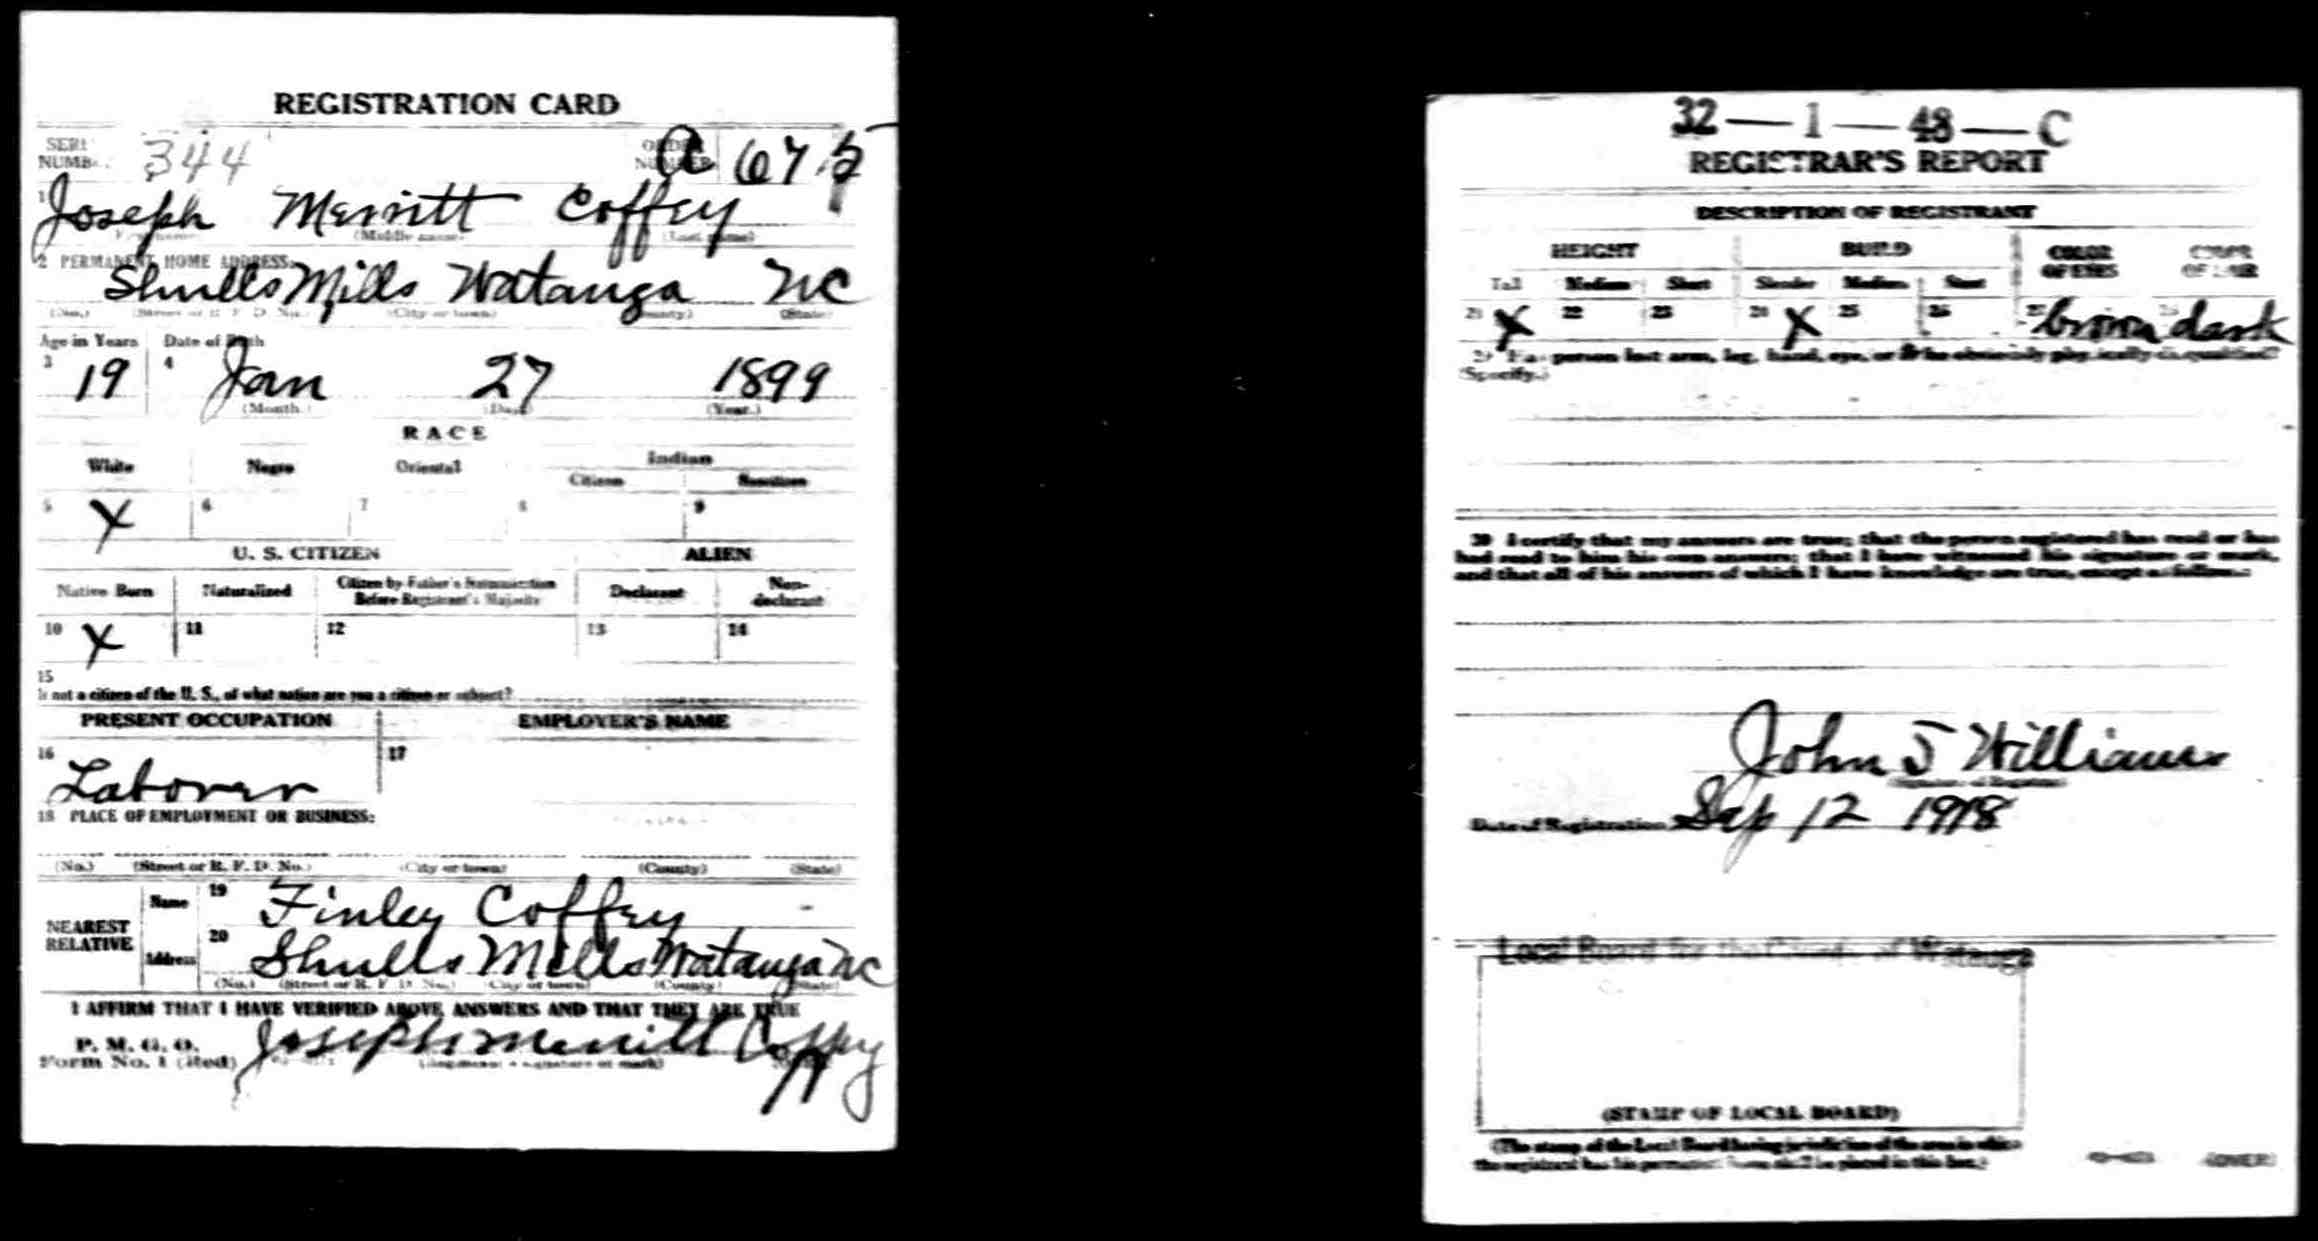 REGISTRATION CARD
SERIAL NUMBER 344 ORDER NUMBER A 675
1 Joseph Merritt Coffey
(First name) (Middle name) (Last name)
2 PERMANENT HOME ADDRESS:
Shulls Mills Watauga NC
(No.) (Street or R. F. D. No.) (City or town) (County) (State)
Age in Years Date of Birth
3 19 4 Jan 27 1899
(Month.) (Day.) (Year.)
RACE
White Negro Oriental Indian
Citizen Noncitizen
5 X 6 7 8 9
U. S. CITIZEN ALIEN
Native Born Naturalized Citizen by Father's Naturalization Before Registrant's Majority Declarant Non-declarant
10 X 11 12 13 14
15
If not a citizen of the U. S., of what nation are you a citizen or subject?
PRESENT OCCUPATION EMPLOYER'S NAME
16 Laborer 17
18 PLACE OF EMPLOYMENT OR BUSINESS:
(No.) (Street or R. F. D. No.) (City or town) (County) (State)
NEAREST RELATIVE Name 19 Finley Coffey
Address 20 Shulls Mills Watauga NC
(No.) (Street or R. F. D. No.) (City or town) (County) (State)
I AFFIRM THAT I HAVE VERIFIED ABOVE ANSWERS AND THAT THEY ARE TRUE
P. M. G. O.
Form No. 1 (Red) Joseph Merritt Coffey
(Registrant's signature or mark)
32—1—48—C
REGISTRAR'S REPORT
DESCRIPTION OF REGISTRANT
HEIGHT BUILD COLOR OF EYES COLOR OF HAIR
Tall Medium Short Slender Medium Stout
21 X 22 23 24 X 25 26 27 brown 28 dark
29 Has person lost arm, leg, hand, eye, or is he obviously physically disqualified?
(Specify.)
30 I certify that my answers are true; that the person registered has read or has
had read to him his own answers; that I have witnessed his signature or mark,
and that all of his answers of which I have knowledge are true, except as follows:
John J Williams
(Signature of Registrar)
Date of Registration Sep 12 1918
Local Board for the County of Watauga
(STAMP OF LOCAL BOARD)
(The stamp of the Local Board having jurisdiction of the area in which
the registrant has his permanent home shall be placed in this box.)
(OVER)